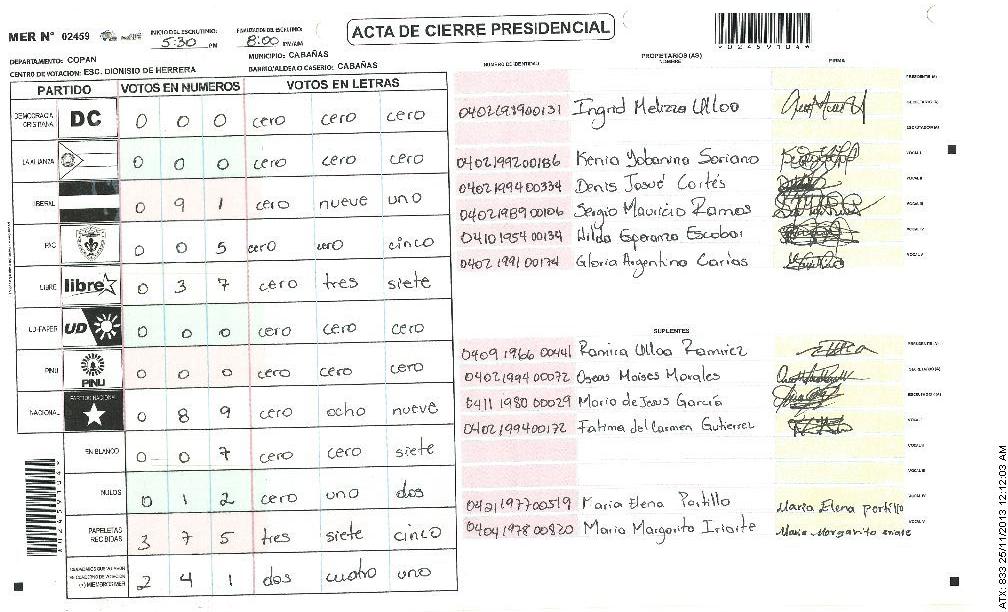 MER N° 02459
INICIO DEL ESCRUTINIO: 5:30 PM
FINALIZACION DEL ESCRUTINIO: 8:00 PM/AM
ACTA DE CIERRE PRESIDENCIAL
DEPARTAMENTO: COPAN
MUNICIPIO: CABAÑAS
CENTRO DE VOTACION: ESC. DIONISIO DE HERRERA
BARRIO/ALDEA O CASERIO: CABAÑAS
PARTIDO VOTOS EN NUMEROS VOTOS EN LETRAS
DEMOCRACIA CRISTIANA DC 0 0 0 cero cero cero
LA ALIANZA 0 0 0 cero cero cero
LIBERAL 0 9 1 cero nueve uno
PAC 0 0 5 cero cero cinco
LIBRE libre 0 3 7 cero tres siete
UD-FAPER UD 0 0 0 cero cero cero
PINU PINU 0 0 0 cero cero cero
NACIONAL PARTIDO NACIONAL 0 8 9 cero ocho nueve
EN BLANCO 0 0 7 cero cero siete
NULOS 0 1 2 cero uno dos
PAPELETAS RECIBIDAS 3 7 5 tres siete cinco
2 4 1 dos cuatro uno
PROPIETARIOS (AS)
NÚMERO DE IDENTIDAD NOMBRE FIRMA
PRESIDENTE (A)
0402198900131 Ingrid Melizza Ulloa SECRETARIO (A)
ESCRUTADOR (A)
0402199200186 Kenia Yobanina Soriano VOCAL I
0402199400334 Denis Josué Cortés VOCAL II
0402198900106 Sergio Mauricio Ramos VOCAL III
0410195400134 Hilda Esperanza Escobar VOCAL IV
0402199100174 Gloria Argentina Carías VOCAL V
SUPLENTES
0409196600441 Ramira Ulloa Ramírez PRESIDENTE (A)
0402199400072 Oseas Moises Morales SECRETARIO (A)
0411198000029 Mario de Jesus García ESCRUTADOR (A)
0402199400172 Fatima del Carmen Gutierrez VOCAL I
VOCAL II
VOCAL III
0421197700519 Maria Elena Portillo Maria Elena portillo VOCAL IV
0404197800820 Maria Margarito Iriarte Maria Margarito iriarte VOCAL V
ATX: 833 25/11/2013 12:12:03 AM